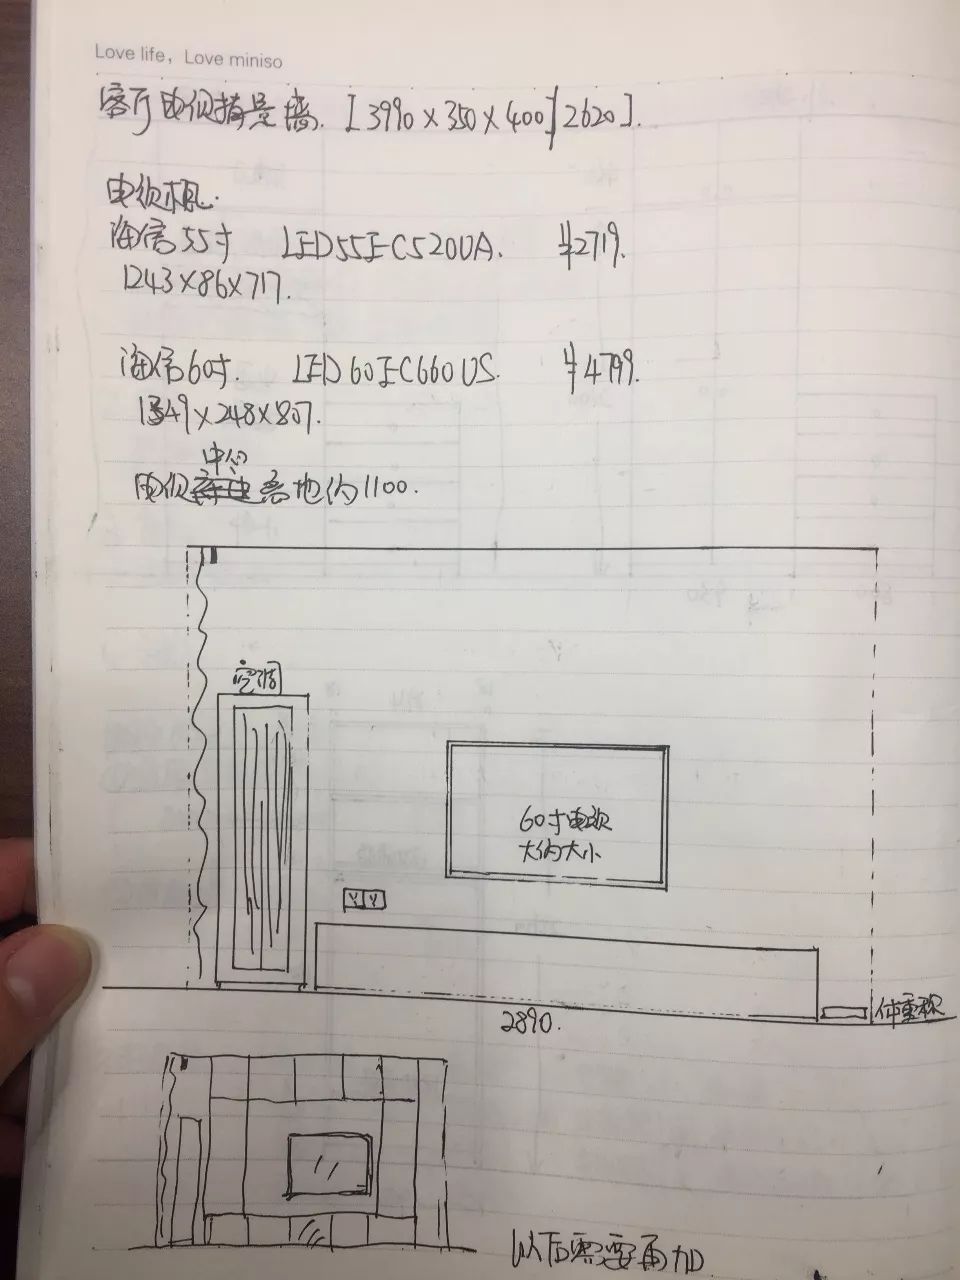 Love life, Love miniso
客厅电视背景墙. [3990×350×400/2620].
电视机.
海信55寸 LED55EC520UA. ¥2719.
1243×86×717.
海信60寸. LED60EC660US. ¥4799.
1349×248×807.
中心
电视离地约1100.
空调
60寸电视
大约大小
体重秤
2890.
以后需要再加